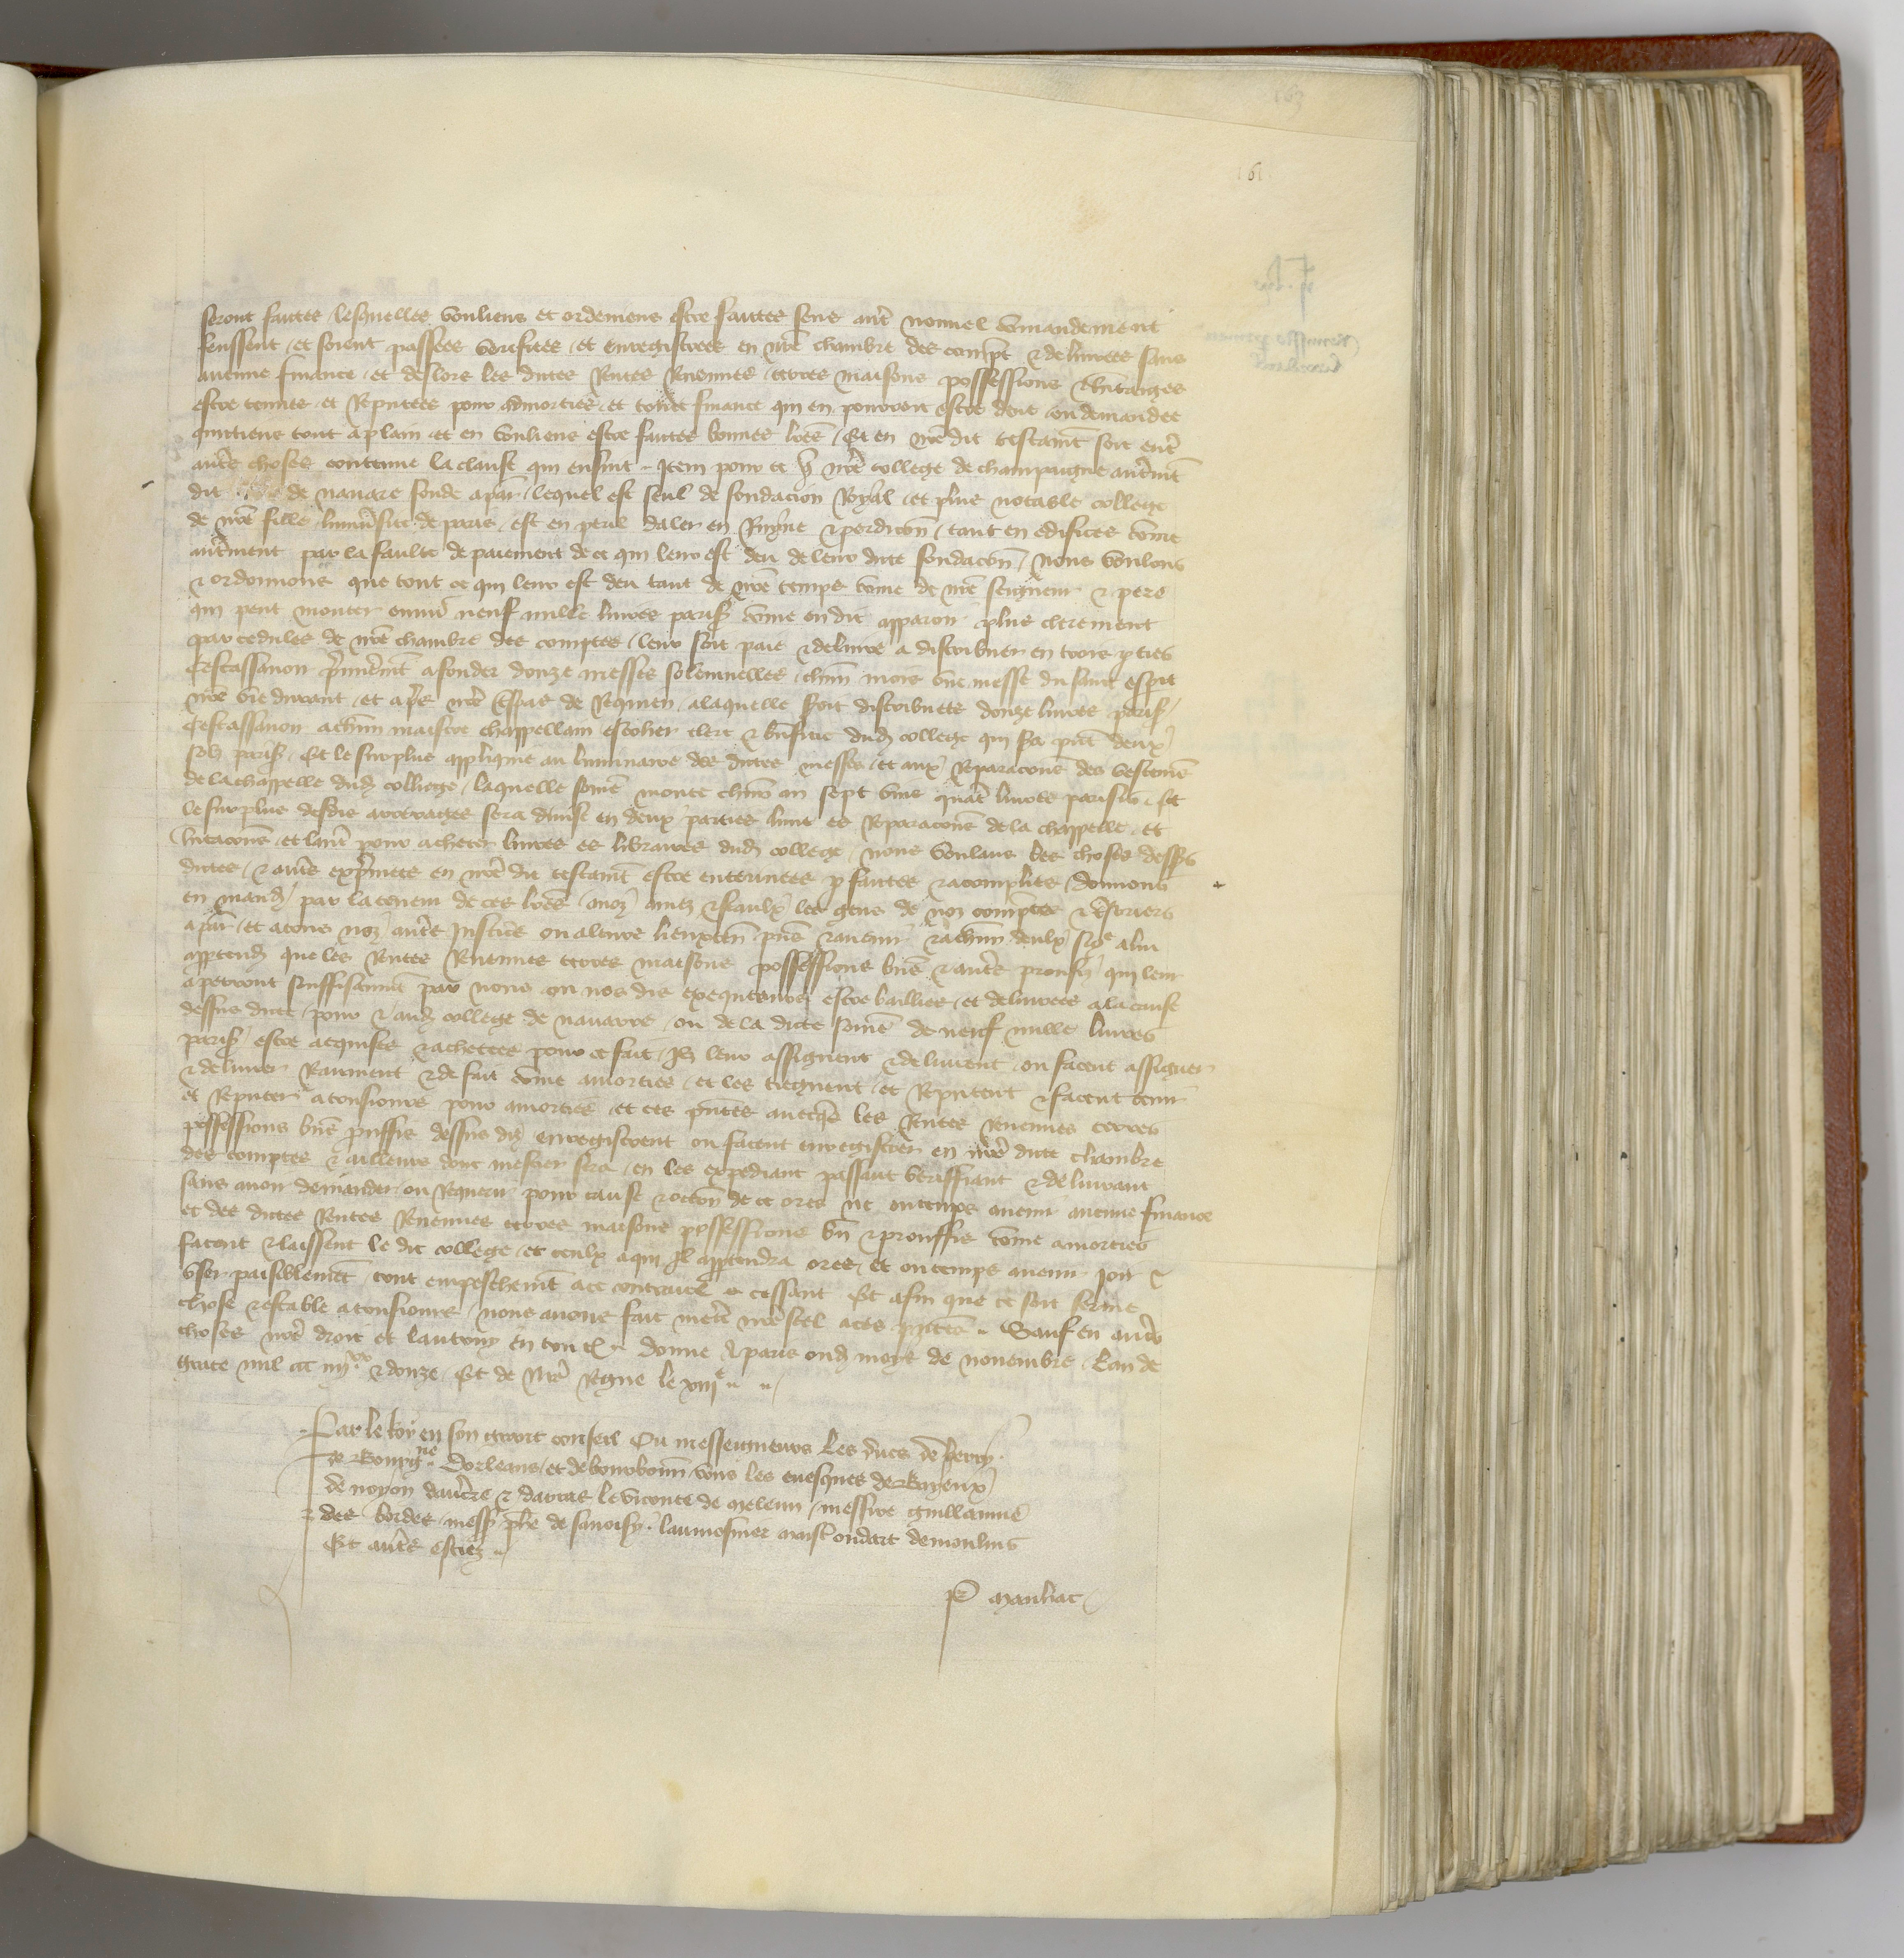 161
seront faittes lesquelles voulsiens et ordeniens estre faittes sens autre nouvel commandement
feussent et soient passees verifiees et enregistrees en nre chambre des compt & delivrees sans
aucune finance et deslors les dictes Rentes Revenues terres maisons possessions
estre tenues et Reputees pour admorties et toute finance qui en pourroit estre deue ou demandee
quittiens tout a plain et en voulsiens estre faittes bonnes lres Et en nre dit testamt soit entre
autres choses contenue la clause qui ensuit Item pour ce q nre college de champaigne autremt
dit de navare fonde a par lequel est seul de fondacion Royal et plus notable college
de nre fille luniversite de paris est en peril daler en Ruyne & perdicon tant en edifices come
autrement par la faulte de paiement de ce qui leur est deu de leur dicte fondacon Nous voulons
& ordonnons que tout ce qui leur est deu tant de nre temps come de nre seigneur & pere
qui peut monter environ neuf mille livres paris come on dit apparoir plus clerement
par cedules de nre chambre des comptes leur soit paie & delivre a distribuer en trois pties
Cestassavoir premieremt a fonder douze messes solennelles chun mois une messe du saint esprit
nre vie durant et apres nre trespas de Requien a laquelle soit distribuees douze livres paris
Cestassavoir a chun maistre chappellain escolier clerc & benefice dud college qui sera prst deux
solz paris Et le surplus applique au luminaire des dictes messes et aux Reparacons des vestemens
de la chappelle dud college laquelle some monte chun an sept vins quatre livres parisis Et
le surplus desdis arrerages sera divise en deux parties lune es Reparacons de la chappelle et
et lautre pour acheter livres es librairies dud college nous voulans les choses dessus
dictes & autres exprimees en nre dit testamt estre enterinees pfaittes & acomplies donnons
en mandt par la teneur de ces lres a noz amez & feaulx les gens de noz comptes & tresoriers
a par et a tous noz autres Justiciers ou a leurs lieuxten prns & avenir & a chun deulx si come a lui
apptendra que les Rentes Revenues terres maisons possessions biens & autres proufiz qui leur
apperront souffisamt par nous ou nos dis exequteurs estre baillies et delivrees a la cause
dessus dicte pour & aud college de navarre ou de la dicte some de neuf mille livres
paris estre acquises & achetees pour ce fait Ilz leur assignent & delivrent ou facent assigner
& delivrer Raument & de fait come amorties et les tiegnent et Reputent & facent tenir
et Reputer a tousiours pour amorties et ces prntes avecqs les Rentes Revenues terres
possessions biens prouffis dessus diz enregistrent ou facent enregistrer en nre dicte chambre
des comptes & ailleurs dont mestier sera en les expediant passant veriffiant & delivrant
sans avoir demander ou Requerir pour cause & occon de ce ores ne ou temps avenir aucune finance
et des dictes Rentes Revenues terres maisons possessions bns & prouffis come amorties
facent & laissent le dit college et ceulx a qui Il apptendra ores et ou temps avenir joir &
user paisiblement tout empeschemt a ce contraire cessant Et afin que ce soit ferme
chose & estable a tousiours nous avons fait mettre nre seel a ces prntes Sauf en autres
choses nre droit et lautruy en toutes Donne a paris oud moys de novembre Lan de
grace mil ccc iiijxx & douze Et de Nre Regne le xiije
Par le Roy en son grant conseil Ou messeigneurs Les ducs de berry
de Bourgne Dorleans et de bourbonn vous les evesques de Bayeux
de noyon daucerre & darras le viconte de Meleun messire guillaume
des bordes mess phe de savoisy laumosnier maist oudart demoulins
Et autres estiez
P Manhac